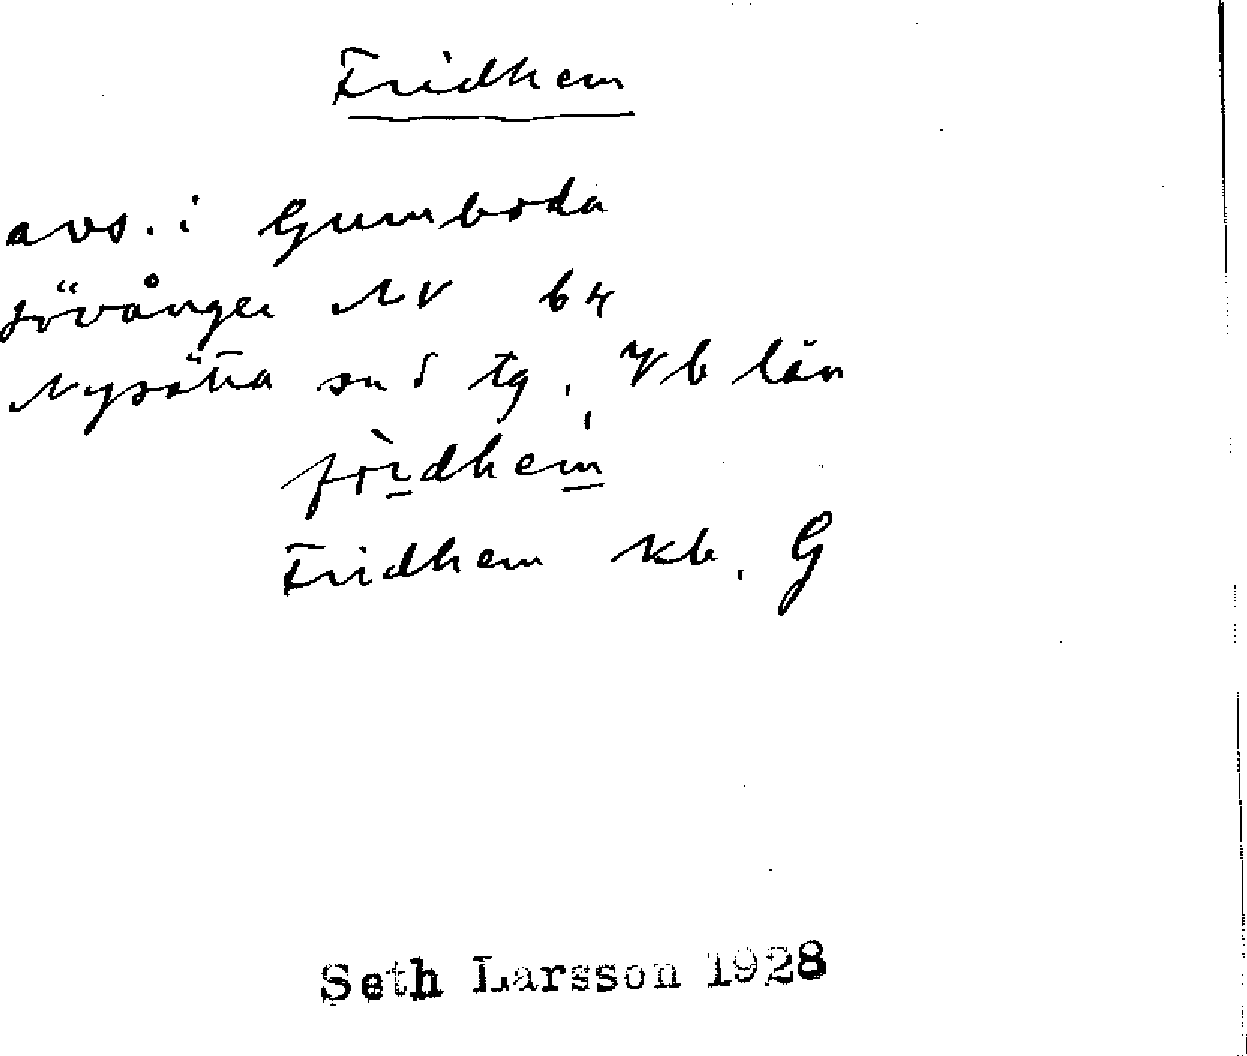 Fridhem
avs. i Gumboda
Lövånger NV b4
Nysätra sn o tg. Vb län
frìdhem
Fridhem kb. G
Seth Larsson 1928